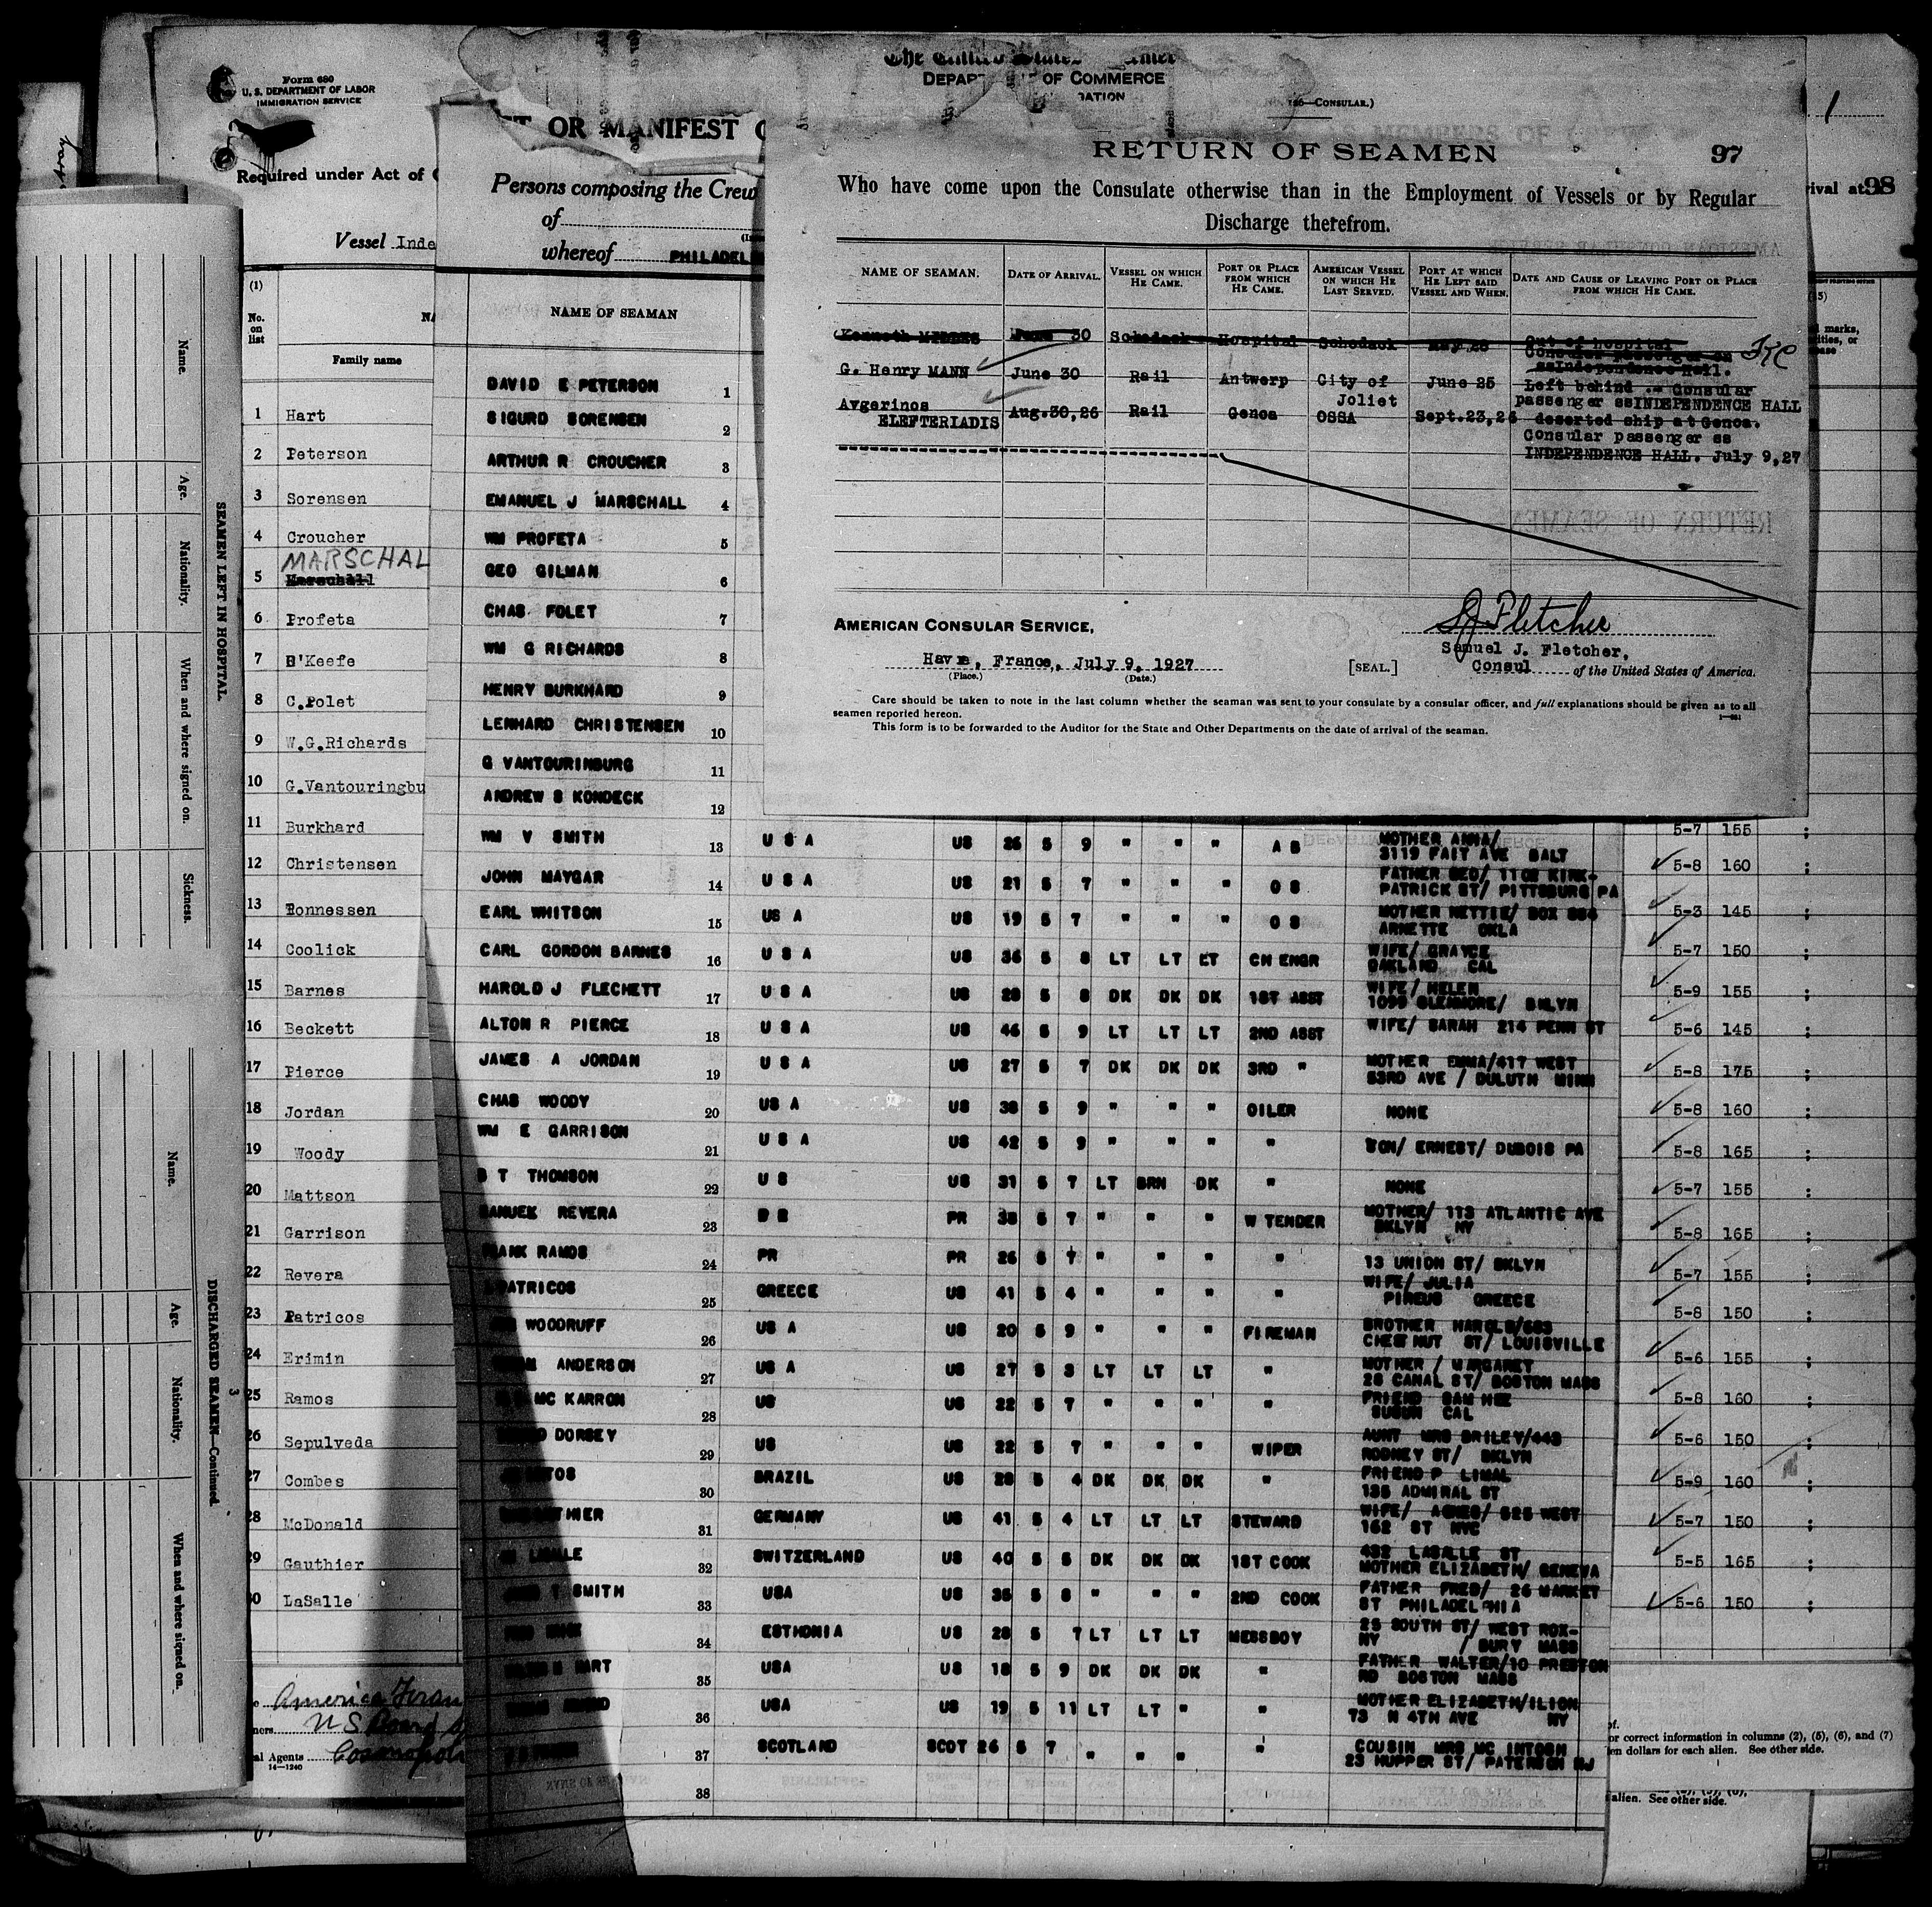 Form 680
U. S. DEPARTMENT OF LABOR
IMMIGRATION SERVICE
Required under Act of
Vessel Inde
(1)
No. on list
Family name
1 Hart
2 Peterson
3 Sorensen
4 Croucher
MARSCHAL
5 Marschall
6 Profeta
7 O'Keefe
8 C.Polet
9 W.G.Richards
10 G.Vantouringbu
11 Burkhard
12 Christensen
13 Ronnessen
14 Coolick
15 Barnes
16 Beckett
17 Pierce
18 Jordan
19 Woody
20 Mattson
21 Garrison
22 Revera
23 Patricos
24 Erimin
25 Ramos
26 Sepulveda
27 Combes
28 McDonald
29 Gauthier
30 LaSalle
America Fran
U S
al Agents
14—1240
SEAMEN LEFT IN HOSPITAL.
Name.
Age.
Nationality.
When and where signed on.
Sickness.
DISCHARGED SEAMEN—Continued.
3
Name.
Age.
Nationality.
When and where signed on.
OR MANIFEST
Persons composing the Crew
of
whereof PHILADEL
NAME OF SEAMAN
DAVID E PETERSON 1
SIGURD SORENSEN 2
ARTHUR R CROUCHER 3
EMANUEL J MARSCHALL 4
WM PROFETA 5
GEO GILMAN 6
CHAS FOLET 7
WM G RICHARDS 8
HENRY BURKHARD 9
LENHARD CHRISTENSEN 10
G VANTOURINBURG 11
ANDREW S KONDECK 12
WM V SMITH 13 U S A US 26 5 9 " " " A B MOTHER ANNA/
3119 FAIT AVE BALT
JOHN MAYGAR 14 U S A US 21 5 7 " " " O S FATHER GEO/ 1102 KIRK-
PATRICK ST/ PITTSBURG PA
EARL WHITSON 15 US A US 19 5 7 " " " O S MOTHER NETTIE/ BOX 884
ARNETTE OKLA
CARL GORDON BARNES 16 U S A US 36 5 8 LT LT LT CH ENGR WIFE/ GRAYCE
OAKLAND CAL
HAROLD J FLECHETT 17 U S A US 29 5 8 DK DK DK 1ST ASST WIFE/ HELEN
1099 GLENMORE/ BKLYN
ALTON R PIERCE 18 U S A US 46 5 9 LT LT LT 2ND ASST WIFE/ SARAH 214 PENN ST
JAMES A JORDAN 19 U S A US 27 5 7 DK DK DK 3RD " MOTHER EMMA/417 WEST
53RD AVE / DULUTH MINN
CHAS WOODY 20 US A US 38 5 9 " " " OILER NONE
WM E GARRISON 21 U S A US 42 5 9 " " " " SON/ ERNEST/ DUBOIS PA
S T THOMSON 22 U S US 31 5 7 LT BRN DK " NONE
MANUEK REVERA 23 P R PR 38 5 7 " " " W TENDER MOTHER/ 113 ATLANTIC AVE
BKLYN NY
FRANK RAMOS 24 PR PR 26 5 7 " " " " 13 UNION ST/ BKLYN
PATRICOS 25 GREECE US 41 5 4 " " " " WIFE/ JULIA
PIREUS GREECE
WOODRUFF 26 US A US 20 5 9 " " " FIREMAN BROTHER HAROLD/683
CHESTNUT ST/ LOUISVILLE
ANDERSON 27 US A US 27 5 3 LT LT LT " MOTHER / MARGARET
28 CANAL ST/ BOSTON MASS
MC KARRON 28 US US 22 5 7 " " " " FRIEND SAM HEE
SUSUN CAL
DORSEY 29 US US 22 5 7 " " " WIPER AUNT MRS BRILEY/443
RODNEY ST/ BKLYN
30 BRAZIL US 28 5 4 DK DK DK " FRIEND P LIMAL
135 ADMIRAL ST
31 GERMANY US 41 5 4 LT LT LT STEWARD WIFE/ AGNES/ 525 WEST
162 ST NYC
LASALLE 32 SWITZERLAND US 40 5 5 DK DK DK 1ST COOK 432 LASALLE ST
MOTHER ELIZABETH/ GENEVA
T SMITH 33 USA US 35 5 8 " " " 2ND COOK FATHER FRED/ 26 MARKET
ST PHILADELPHIA
34 ESTHONIA US 28 5 7 LT LT LT MESSBOY 25 SOUTH ST/ WEST ROX-
NY / BURY MASS
HART 35 USA US 18 5 9 DK DK DK " FATHER WALTER/10 PRESTON
RD BOSTON MASS
36 USA US 19 5 11 LT LT " " MOTHER ELIZABETH/ILION
73 N 4TH AVE NY
37 SCOTLAND SCOT 26 5 7 " " " " COUSIN MRS MC INTOSH
23 HUPPER ST/ PATERSON NJ
38
DEPARTMENT OF COMMERCE
—CONSULAR.)
RETURN OF SEAMEN 97
Who have come upon the Consulate otherwise than in the Employment of Vessels or by Regular
Discharge therefrom.
NAME OF SEAMAN. DATE OF ARRIVAL. VESSEL ON WHICH HE CAME. PORT OR PLACE FROM WHICH HE CAME. AMERICAN VESSEL ON WHICH HE LAST SERVED. PORT AT WHICH HE LEFT SAID VESSEL AND WHEN. DATE AND CAUSE OF LEAVING PORT OR PLACE FROM WHICH HE CAME.
Kenneth June 30 Schodack Hospital Schodack May 28 Out of hospital
Consular passenger on
ssIndependence Hall.
G. Henry MANN June 30 Rail Antwerp City of Joliet June 25 Left behind .- Consular
passenger ssINDEPENDENCE HALL
Avgerinos
ELEFTERIADIS Aug.30,26 Rail Genoa OSSA Sept.23,26 deserted ship at Genoa.
Consular passenger ss
INDEPENDENCE HALL. July 9,27
AMERICAN CONSULAR SERVICE,
S J Fletcher
Samuel J. Fletcher,
Havre, France, July 9, 1927 [SEAL.] Consul of the United States of America.
(Place.) (Date.)
Care should be taken to note in the last column whether the seaman was sent to your consulate by a consular officer, and full explanations should be given as to all
seamen reported hereon.
This form is to be forwarded to the Auditor for the State and Other Departments on the date of arrival of the seaman.
1
rival at 98
marks,
5-7 155
5-8 160
5-3 145
5-7 150
5-9 155
5-6 145
5-8 175
5-8 160
5-8 165
5-7 155
5-8 165
5-7 155
5-8 150
5-6 155
5-8 160
5-6 150
5-9 160
5-7 150
5-5 165
5-6 150
or correct information in columns (2), (5), (6), and (7)
ten dollars for each alien. See other side.
alien. See other side.